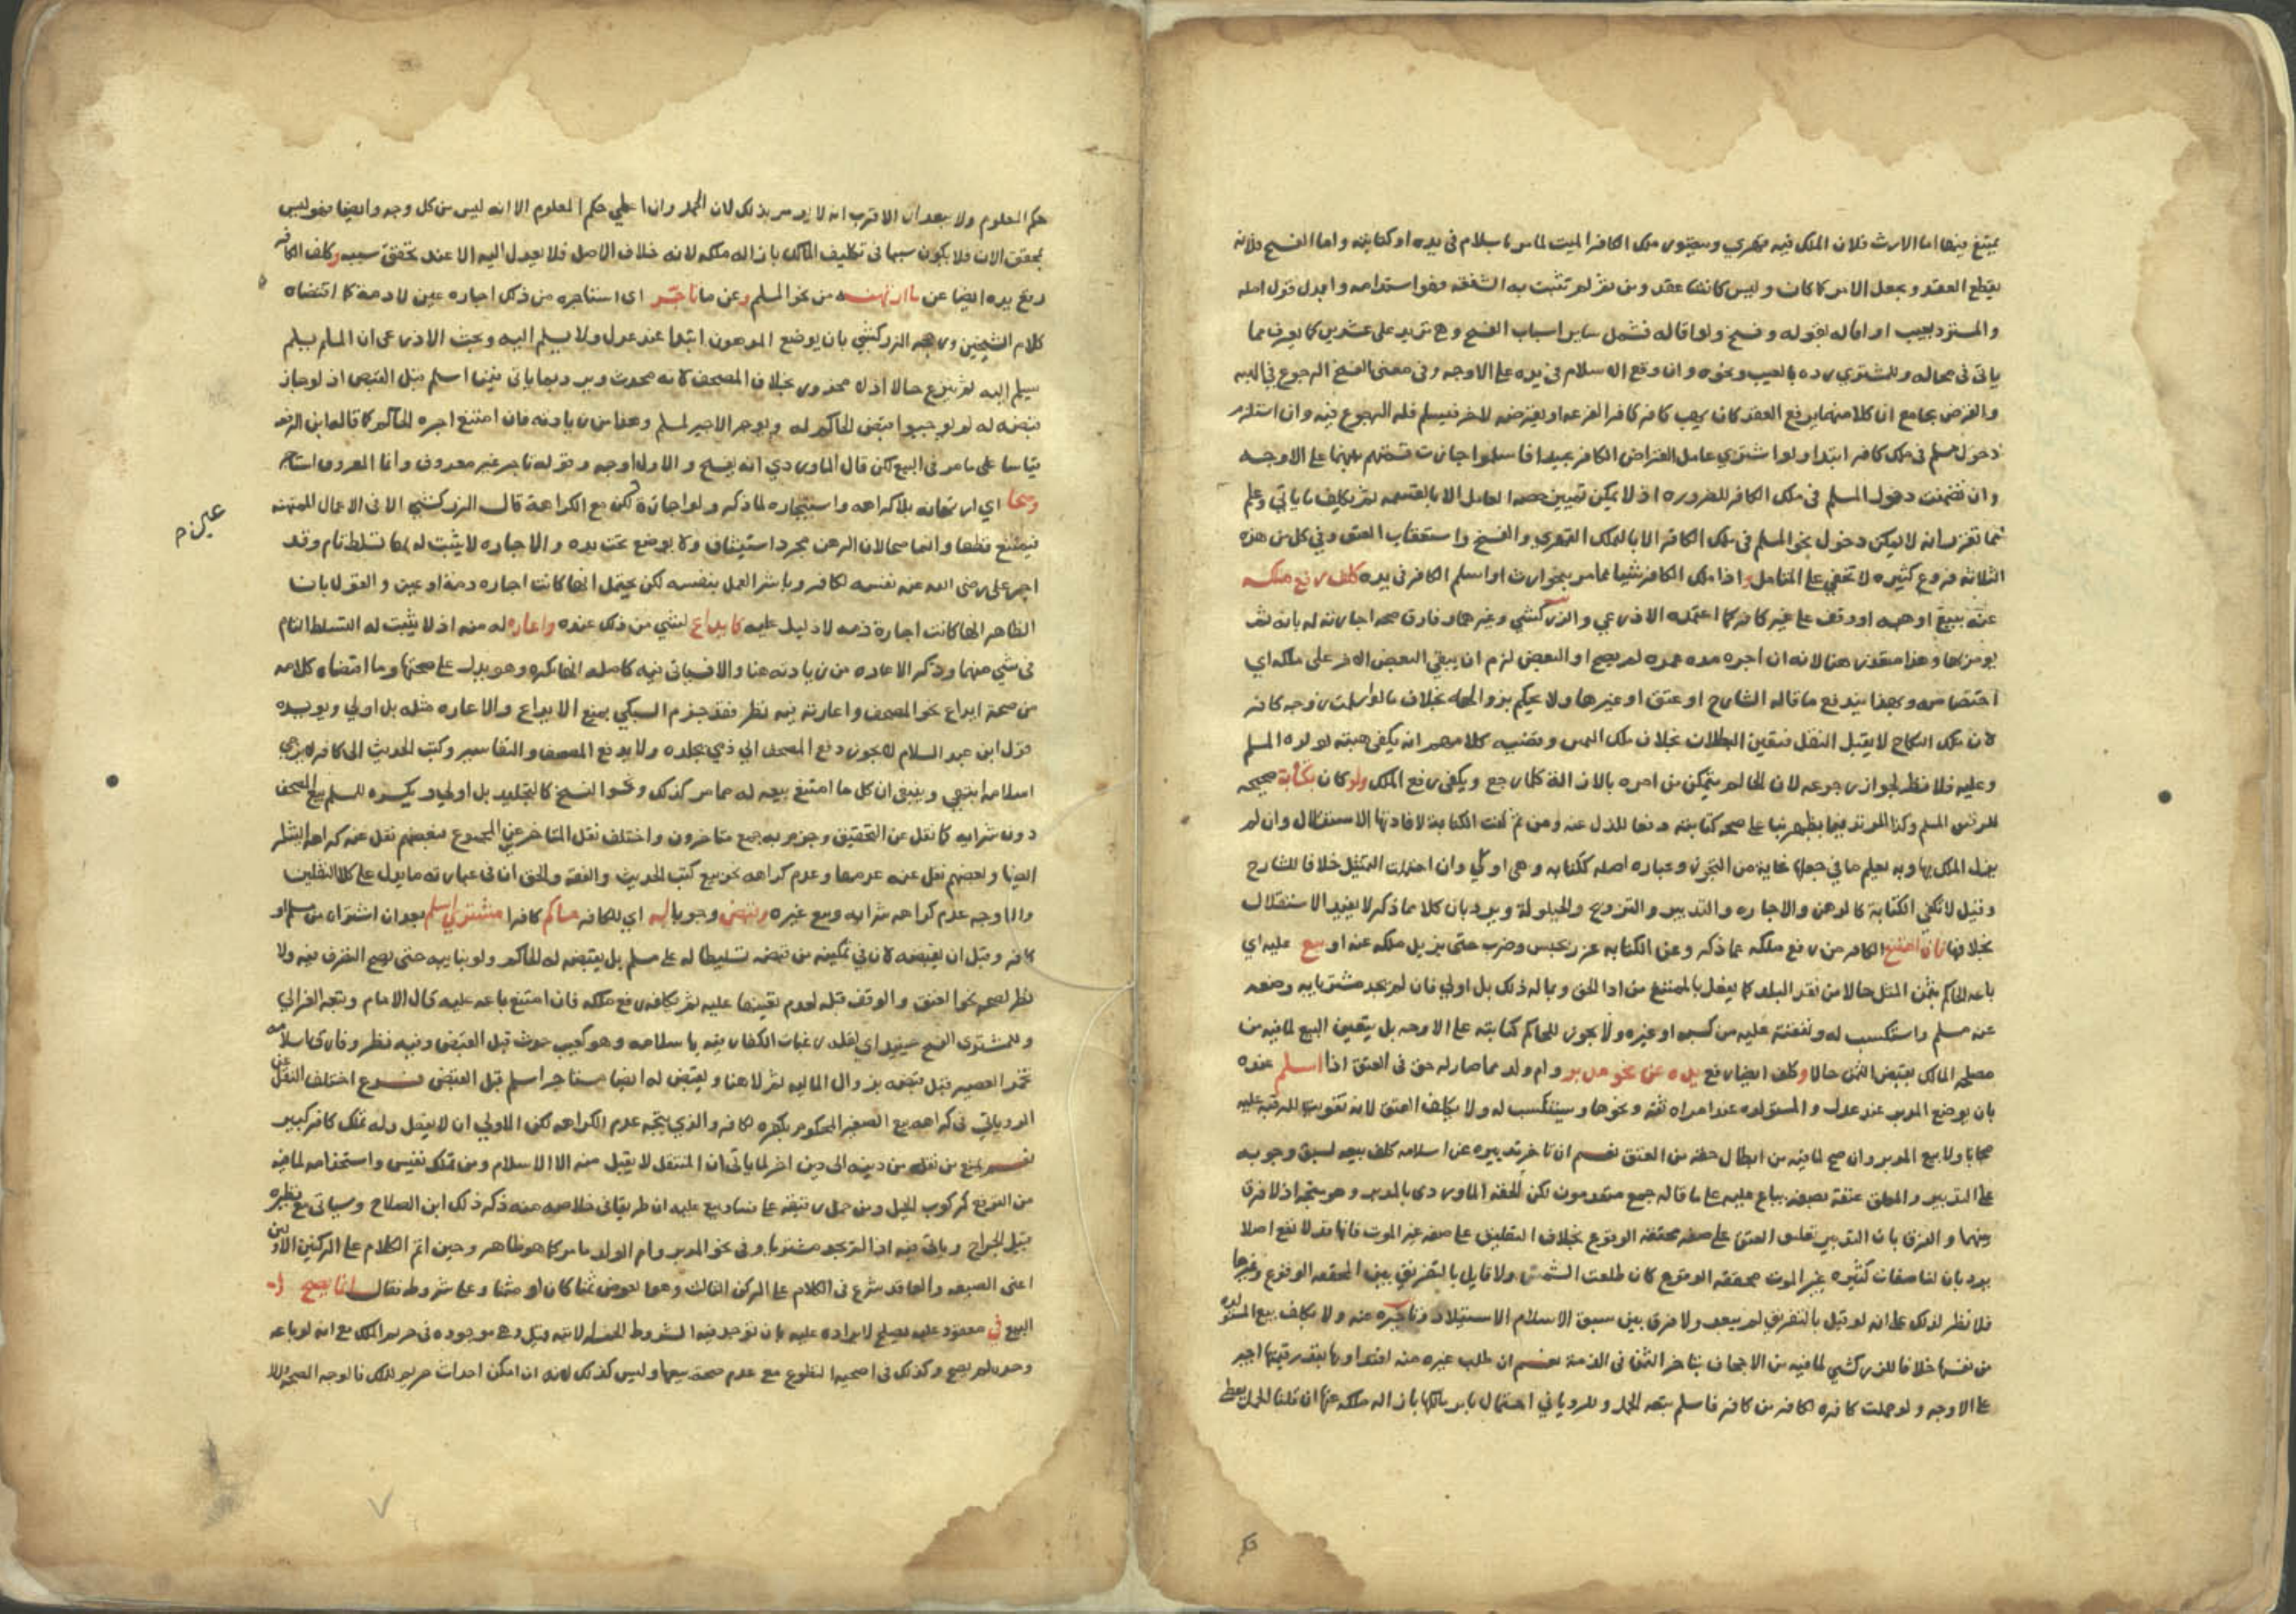 يمتنع فيها اما الارث فلان الملك فيه قهري ويستوي ملك الكافر الميت لما مر باسلام في يده او كتابته واما الفسخ فلانه
يقطع العقد ويجعل الامر كما كان وليس كانشا عقد ومن ثم لم تثبت به الشفعة فهو استدامه وابدل قول اصله
والمسترد بعيب او اقاله بقوله وفسخ ولو اقاله فشمل ساير اسباب الفسخ وهي تزيد على عشرين كما يعرف مما
ياتي في محاله وللمشتري رده بالعيب ونحوه وان وقع الاسلام في يده على الاوجه وفي معنى الفسخ الرجوع في الهبه
والقرض بجامع ان كلا منهما يرفع العقد كان يهب كافر كافرا لفرعه او يقرضه لاخر فيسلم فله الرجوع فيه وان استلزم
دخول مسلم في ملك كافر ابتدا ولو اشتري عامل القراض الكافر عبيدا فاسلموا جازت قسمتهم بينهما على الاوجه
وان تضمنت دخول المسلم في ملك الكافر للضروره اذ لا يمكن تمييز حصه العامل الا بالقسمه ثم يكلف ما ياتي وعلم
مما تقرر انه لا يمكن دخول نحو المسلم في ملك الكافر الا بالملك القهري والفسخ واستعقاب العتق وفي كل من هذه
الثلاثه فروع كثيره لا تخفي على المتامل واذا ملك الكافر شيا مما مر بنحو ارث او اسلم الكافر في يده كلف رفع ملكه
عنه ببيع او هبه او وقف على غير كافر كما اعتمده الاذرعي والزركشي وغيرهما وفارق صحه اجارته له بانه ثم
يومر بها وهذا متعذر هنا لانه ان اجره مده عمره لم يصح او البعض لزم ان يبقي البعض الاخر على ملكه اي
اختصاصه وبهذا يندفع ما قاله الشارح او عتق او غيرها ولا يحكم بزوالها بخلاف ما لو اسلمت زوجه كافر
لان ملك النكاح لا يقبل النقل فتعين البطلان بخلاف ملك اليمين وقضيه كلامهم انه يكفي هبته لولده المسلم
وعليه فلا نظر لجواز رجوعه لان الحاكم متمكن من امره بالازالة كلما رجع ويكفي رفع الملك ولو كان بكتابة صحيحه
للرقيق المسلم وكذا المرتد فيما يظهر بنا على صحه كتابته دفعا للذل عنه ومن ثم كفت الكتابة لافادتها الاستقلال وان لم
يزل الملك بها وبه يعلم ما في جعلها غاية من التجوز وعباره اصله ككتابه وهي اولي وان احترات التمثيل خلافا للشارح
وقيل لا تكفي الكتابة كالرهن والاجاره والتدبير والتزويج والحيلولة ويرد بان كلا مما ذكر لا يفيد الاستقلال
بخلافها فان امتنع الكافر من رفع ملكه عما ذكر وعن الكتابه عزر بحبس وضرب حتى يزيل ملكه عنه او بيع عليه اي
باعه الحاكم بثمن المثل حالا من نقد البلد كما يفعل بالممتنع من ادا الحق وماله ذلك بل اولي فان لم يجد مشتريا به وضعه
عند مسلم واستكسب له ونفقته عليه من كسبه او غيره ولا يجوز للحاكم كتابته على الاوجه بل يتعين البيع لما فيه من
مصلحه المالك بقبض الثمن حالا وكلف ايضا رفع يده عن نحو مدبر وام ولد مما صار له حق في العتق اذا اسلم عنده
بان يوضع المدبر عند عدل والمستولده عند امراه ثقه ونحوها ويستكسب له ولا يكلف العتق لانه تفويت للرقبه عليه
مجانا ولا بيع المدبر وان صح لما فيه من ابطال حقه من العتق نعم ان تاخر تدبيره عن اسلامه كلف بيعه لسبق وجوبه
على التدبير والمعلق عتقه بصفه يباع عليه على ما قاله جمع متقدمون لكن الحقه الماوردي بالمدبر وهو متجه اذ لا فرق
بينهما والفرق بان التدبير تعليق العتق على صفه محققه الوقوع بخلاف التعليق على صفه غير الموت فانها قد لا تقع اصلا
يرد بان لنا صفات كثيره غير الموت محققه الوقوع كان طلعت الشمس ولا قايل بالتفريق بين المحققه الوقوع وغيرها
فلا نظر لذلك على انه لو قيل بالتفريق لم يبعد ولا فرق بين سبق الاسلام الاستيلاد وتاخيره عنه ولا يكلف بيع المستولده
من نفسها خلافا للزركشي لما فيه من الاجحاف بتاخر الثمن في الذمة نعم ان طلب غيره منه افتداوها بقدر قيمتها اجبر
على الاوجه ولو حملت كافره لكافر من كافر فاسلم تبعه الحمل وللروياني احتمال بامر مالكها بازاله ملكه عنها ان قلنا الحمل يعطى
حكم
حكم المعلوم ولا يبعد ان الاقرب انه لا يومر بذلك لان الحمل وان اعطي حكم المعلوم الا انه ليس من كل وجه وايضا فهو ليس
بمحقق الان فلا يكون سببا في تكليف المالك بازاله ملكه لانه خلاف الاصل فلا يعدل اليه الا عند تحقق سببه وكلف الكافر
رفع يده ايضا عن ما ارتهنه من نحو المسلم وعن ما تاجر اي استاجره من ذلك اجاره عين لا ذمة كما اقتضاه
كلام الشيخين ورجحه الزركشي بان يوضع المرهون ابتدا عند عدل ولا يسلم اليه وبحث الاذرعي ان المسلم يسلم
يسلم اليه ثم ينزع حالا اذ لا محذور بخلاف المصحف لانه محدث ويرد بما ياتي فيما اسلم قبل القبض اذ لو جاز
قبضه له لم يوجبوا قبض الحاكم له ويوجر الاجير لمسلم وهذا من زيادته فان امتنع اجره الحاكم كما قاله ابن الرفعه
قياسا على ما مر في البيع لكن قال الماوردي انه يفسخ والاول اوجه وقوله تاجر غير معروف وانما المعروف استاجر
وصحا اي ارتهانه بلا كراهه واستيجاره لما ذكر ولو اجارة لكن مع الكراهة قال الزركشي الا في الاعمال الممتهنه
فيمتنع قطعا وانما صحا لان الرهن مجرد استيثاق ولا يوضع تحت يده والاجاره لا يثبت له بها تسلط تام وقد
اجر علي رضى الله عنه نفسه لكافر وباشر العمل بنفسه لكن يحتمل انها كانت اجاره ذمة او عين والقول بان
الظاهر انها كانت اجارة ذمه لا دليل عليه كايداع لشي من ذلك عنده واعاره له منه اذ لا يثبت له التسلط التام
في شي منهما وذكر الاعاره من زيادته هنا والا فسياتي فيه كاصله انها تكره وهو يدل على صحتها وما اقتضاه كلامه
من صحة ايداع نحو المصحف واعارته فيه نظر فقد جزم السبكي بمنع الايداع والاعاره مثله بل اولي ويويده
قول ابن عبد السلام لا يجوز دفع المصحف الي ذمي يجلده ولا يدفع المصحف والتفاسير وكتب الحديث الى كافر لا يرجي
اسلامه انتهي وينبغي ان كل ما امتنع بيعه له مما مر كذلك ونحو النسخ كالتجليد بل اولي ويكره للمسلم بيع المصحف
دون شرايه كما نقل عن التحقيق وجزم به جمع متاخرون واختلف نقل المتاخرين عن المجموع فبعضهم نقل عنه كراهه الشرا
ايضا وبعضهم نقل عنه عدمها وعدم كراهه نحو بيع كتب الحديث والفقه والحق ان في عبارته ما يدل على كلا النقلين
والاوجه عدم كراهه شرايه وبيع غيره وقبض وجوبا له اي للكافر حاكم كافرا مشتري اسلم بعد ان اشتراه من مسلم او
كافر وقبل ان يقبضه لان في تمكينه من قبضه تسليطا له على مسلم بل يقبضه له الحاكم ولو بنايبه حتى يصح التصرف فيه ولا
نظر لصحه نحو العتق والوقف قبله لعدم تعينهما عليه ثم يكلفه رفع ملكه فان امتنع باعه عليه قال الامام وتبعه الغزالي
وللمشتري الفسخ حينيذ اي لقله رغبات الكفار فيه باسلامه وهو كعيب حدث قبل القبض وفيه نظر وفارق اسلامه
تخمر العصير قبل قبضه بزوال الماليه ثم لا هنا ويقبض له ايضا مستاجر اسلم قبل القبض فرع اختلف النقل عن
الروياني في كراهه بيع الصغير المحكوم بكفره لكافر والذي يتجه عدم الكراهه لكن الاولي ان لا يفعل وله تملك كافر كبير
نعم يمنع من نقله من دينه الى دين اخر لما ياتي ان المنتقل لا يقبل منه الا الاسلام ومن تملك نفيس واستخدامه لما فيه
من الترفع كركوب الخيل ومن حمل رقيقه على فساد وبيع عليه ان طريقا في خلاصه منه ذكر ذلك ابن الصلاح وسياتي مع نظيره
قبيل الجراح وياتي فيه اذا لم يجد مشتريا وفي نحو المدبر وام الولد ما مر كما هو ظاهر وحين اتم الكلام على الركنين الاولين
اعني الصيغه والعاقد شرع في الكلام على الركن الثالث وهو العوض ثمنا كان او مثمنا وعلى شروطه فقال انما يصح
البيع في معقود عليه يصلح لايراده عليه بان توجد فيه الشروط الخمسة الاتيه قبل وهي موجوده في حريم الملك مع انه لو باعه
وحده لم يصح وكذلك في اضحيه التطوع مع عدم صحة بيعها وليس كذلك لانه ان امكن احداث حريم للملك فالوجه الصحه والا